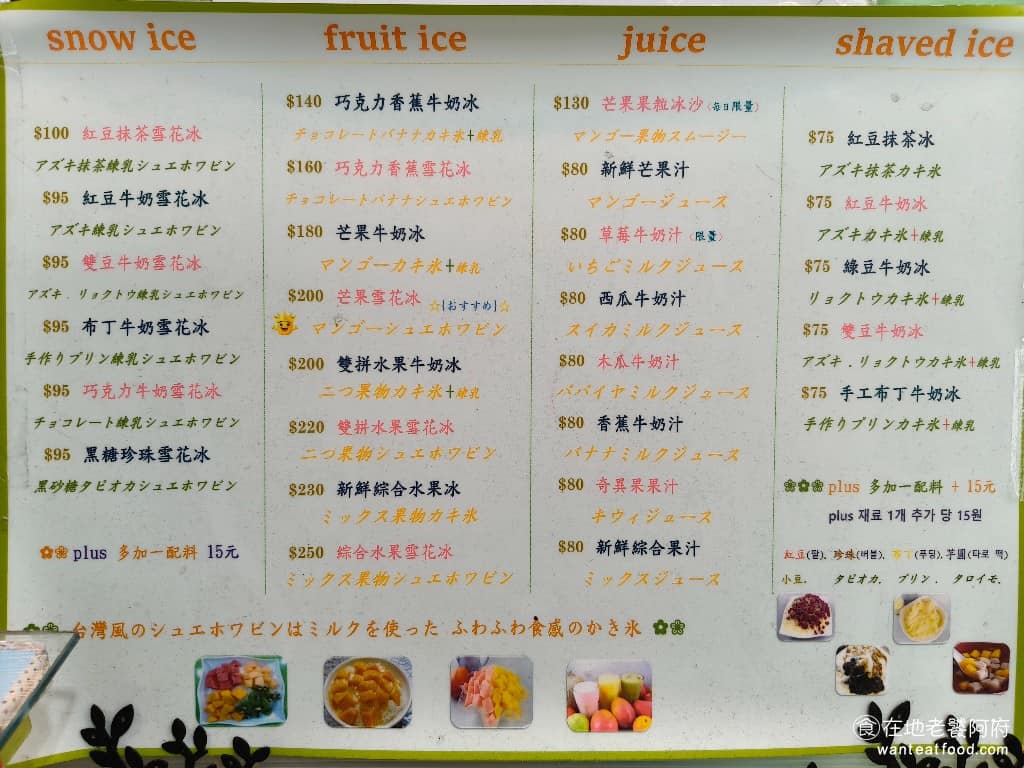 snow ice
$100 紅豆抹茶雪花冰
アズキ抹茶練乳シュエホワビン
$95 紅豆牛奶雪花冰
アズキ練乳シュエホワビン
$95 雙豆牛奶雪花冰
アズキ．リョクトウ練乳シュエホワビン
$95 布丁牛奶雪花冰
手作りプリン練乳シュエホワビン
$95 巧克力牛奶雪花冰
チョコレート練乳シュエホワビン
$95 黑糖珍珠雪花冰
黒砂糖タピオカシュエホワビン
plus 多加一配料 15元
fruit ice
$140 巧克力香蕉牛奶冰
チョコレートバナナカキ氷+練乳
$160 巧克力香蕉雪花冰
チョコレートバナナシュエホワビン
$180 芒果牛奶冰
マンゴーカキ氷+練乳
$200 芒果雪花冰 ☆[おすすめ]☆
マンゴーシュエホワビン
$200 雙拼水果牛奶冰
二つ果物カキ氷+練乳
$220 雙拼水果雪花冰
二つ果物シュエホワビン
$230 新鮮綜合水果冰
ミックス果物カキ氷
$250 綜合水果雪花冰
ミックス果物シュエホワビン
juice
$130 芒果果粒冰沙（每日限量）
マンゴー果物スムージー
$80 新鮮芒果汁
マンゴージュース
$80 草莓牛奶汁（限量）
いちごミルクジュース
$80 西瓜牛奶汁
スイカミルクジュース
$80 木瓜牛奶汁
パパイヤミルクジュース
$80 香蕉牛奶汁
バナナミルクジュース
$80 奇異果果汁
キウィジュース
$80 新鮮綜合果汁
ミックスジュース
shaved ice
$75 紅豆抹茶冰
アズキ抹茶カキ氷
$75 紅豆牛奶冰
アズキカキ氷+練乳
$75 綠豆牛奶冰
リョクトウカキ氷+練乳
$75 雙豆牛奶冰
アズキ．リョクトウカキ氷+練乳
$75 手工布丁牛奶冰
手作りプリンカキ氷+練乳
plus 多加一配料 + 15元
plus 재료 1개 추가 당 15원
紅豆(팥)、珍珠(버블)、布丁(푸딩)、芋圓(타로 떡)
小豆. タピオカ. プリン. タロイモ.
台灣風のシュエホワビンはミルクを使った ふわふわ食感のかき氷
食在地老饕阿府
wanteatfood.com